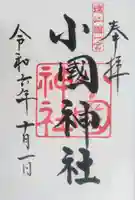 奉拝
遠江國一宮
小國神社
令和六年十一月一日